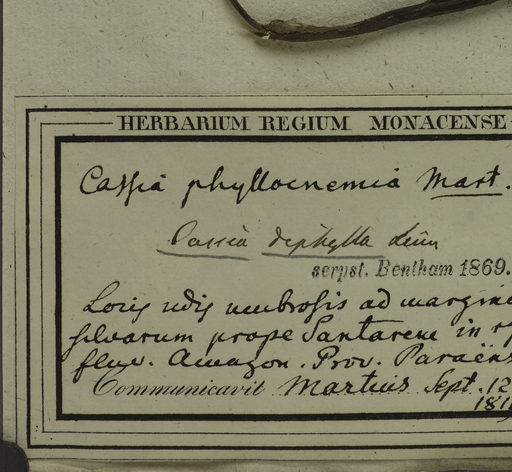 HERBARIUM REGIUM MONACENSE
Cassia phyllocnemia Mart.
Cassia diphylla Linn
scrpst. Bentham 1869.
Locis udis umbrosis ad margine
silvarum prope Santarem in
fluv. Amazon. Prov. Paraëns
Communicavit Martius Sept. 12